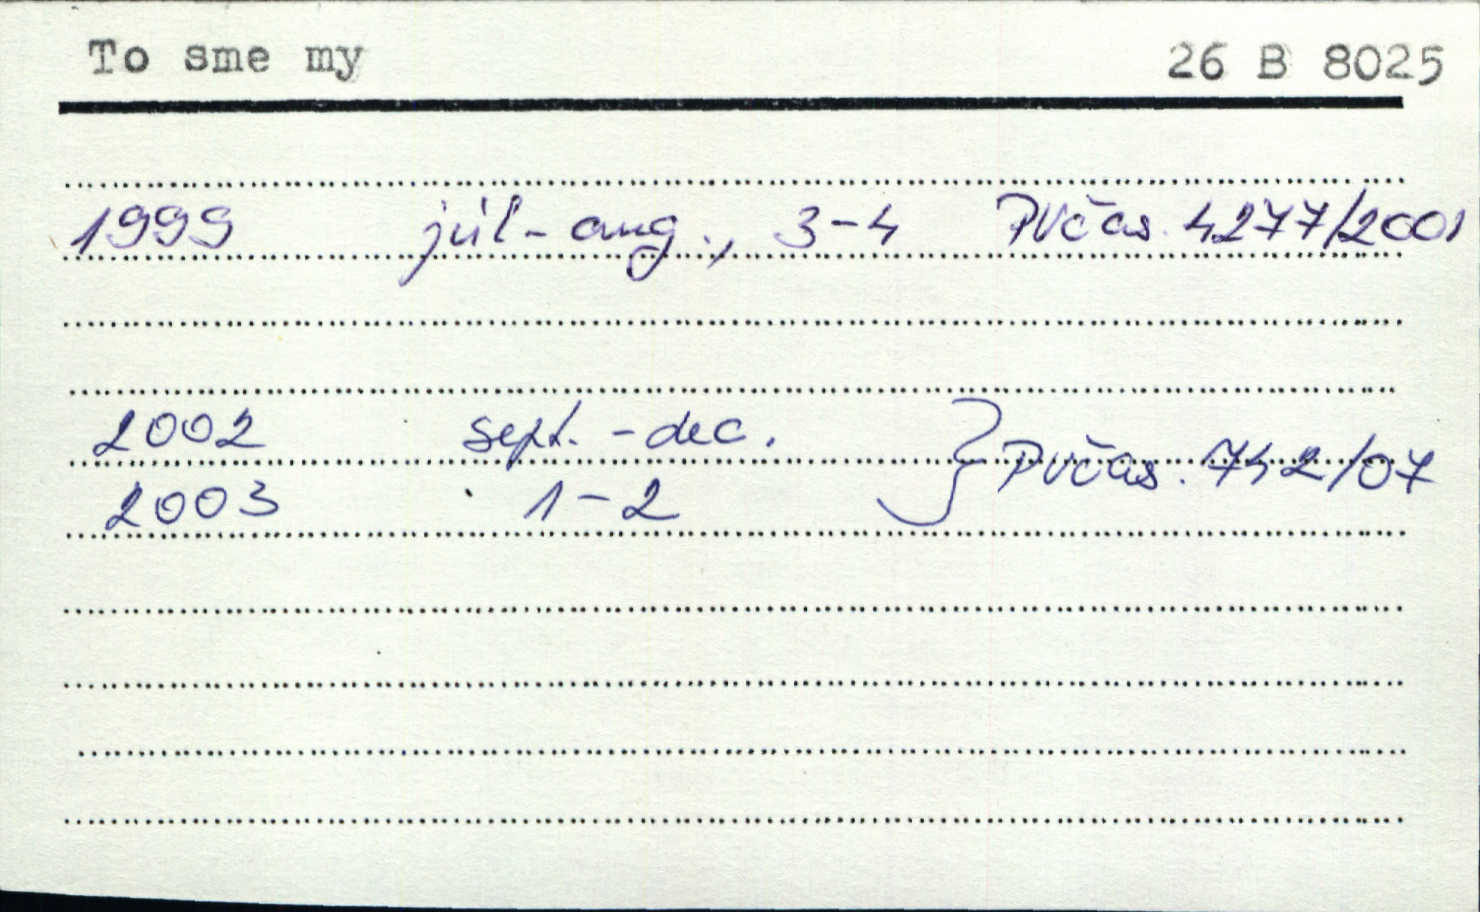 To sme my 26 B 8025
1999 júl-aug., 3-4 PVčas. 4277/2001
2002 sept.-dec. } PVčas. 742/07
2003 1-2